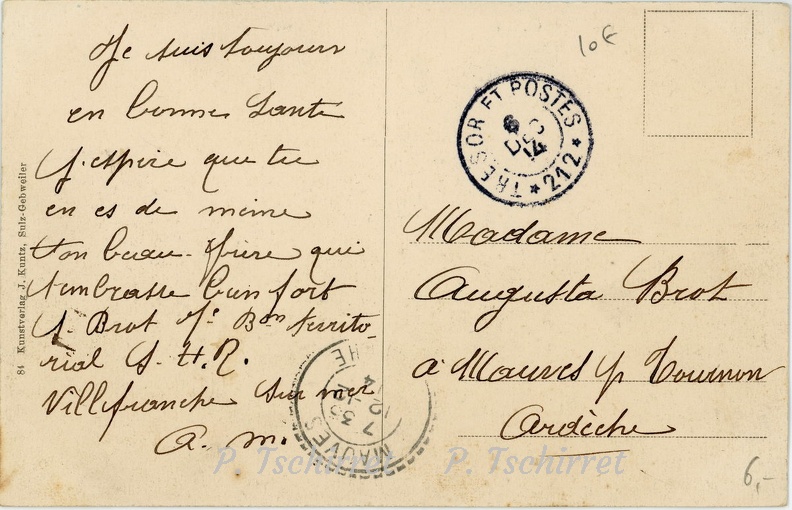 Je suis toujours
en bonne Santé
J'espère que tu
en es de même
ton beau-frère qui
t'embrasse bien fort
J. Brot 7e Bon territo-
rial S. H. R.
Villefranche sur mer
A. M.
84 Kunstverlag J. Kuntz, Sulz-Gebweiler
10€
TRESOR ET POSTES
* 212 *
6
DEC
14
Madame
Augusta Brot
à Mauves p Tournon
Ardèche
MAUVES
P. Tschirret
P. Tschirret
6,-